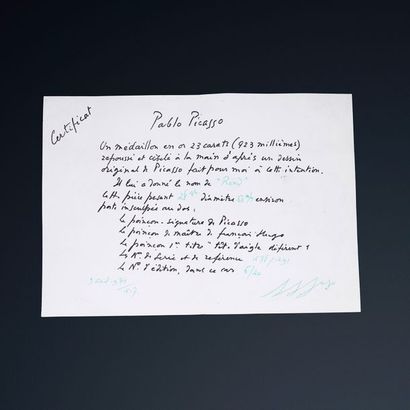 Certificat
Pablo Picasso
Un médaillon en or 23 carats (923 millièmes)
repoussé et ciselé à la main d'après un dessin
original de Picasso fait pour moi à cette intention.
Il lui a donné le nom de
Cette pièce pesant diamètre environ
porte insculpée au dos:
le poinçon-signature de Picasso
le poinçon de maître de françois Hugo
le poinçon 1er titre tête d'aigle différent 1
le N° de série et de référence
le N° d'édition, dans ce cas 6/20